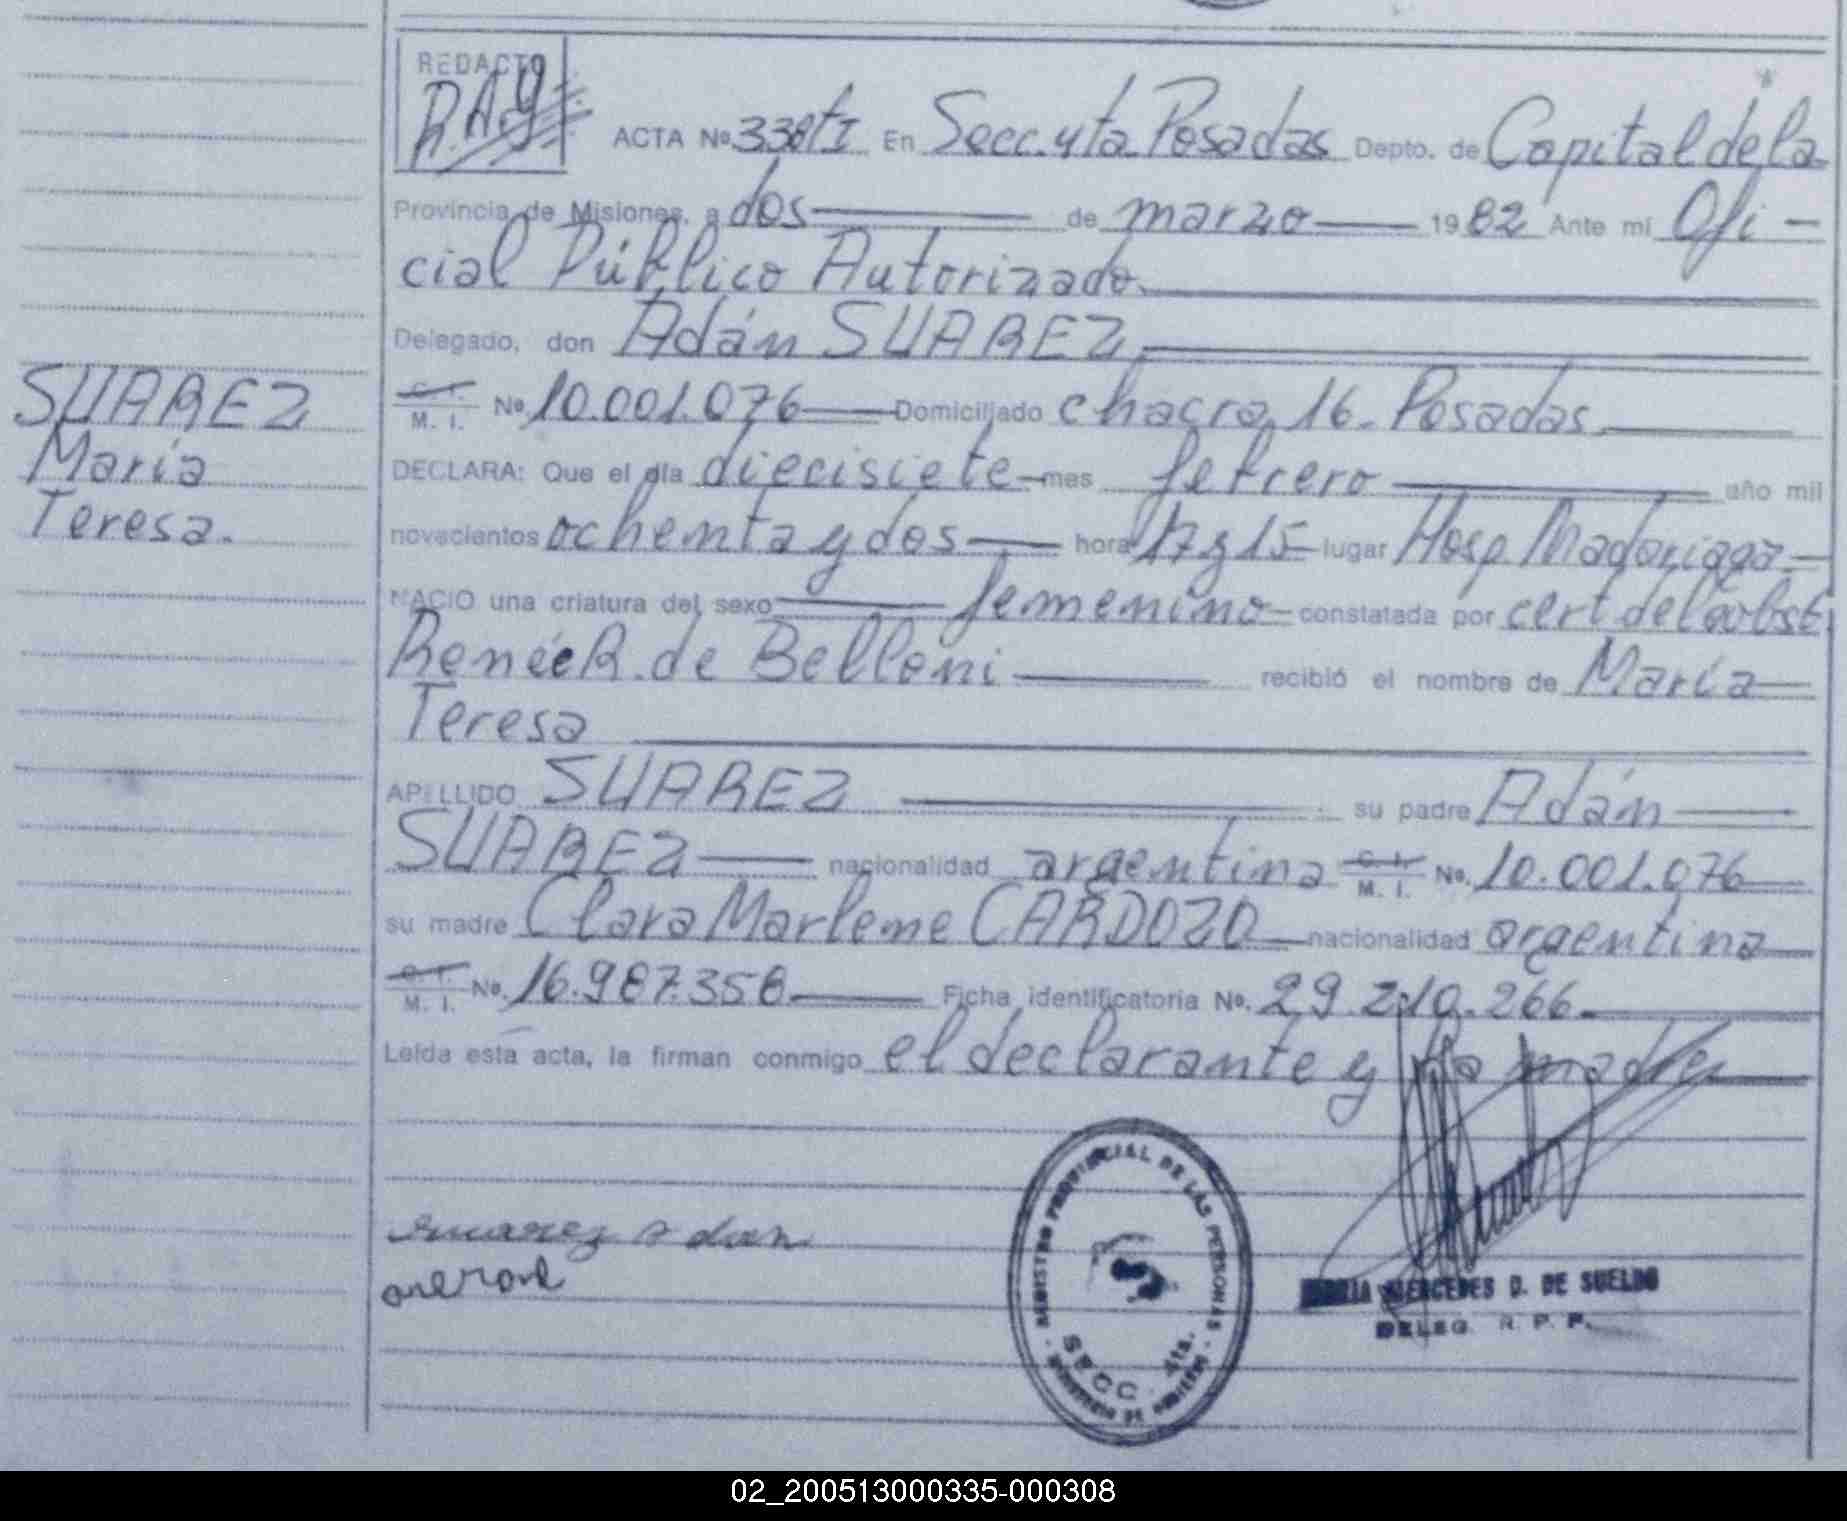 REDACTO
ACTA Nº 338 tI En Secc. 4ta Posadas Depto. de Capital de la
Provincia de Misiones, a dos de marzo 1982 Ante mí Ofi-
cial Público Autorizado
Delegado, don Adán SUAREZ
C. I.
M. I. Nº 10.001.076 Domiciliado chacra 16. Posadas
SUAREZ
María
Teresa.
DECLARA: Que el día diecisiete mes febrero año mil
novecientos ochenta y dos hora 17 y 15 lugar Hosp. Madariaga
NACIO una criatura del sexo femenino constatada por cert de la obst
Renée R. de Belloni recibió el nombre de María
Teresa
APELLIDO SUAREZ su padre Adán
SUAREZ nacionalidad argentina C. I. M. I. Nº 10.001.076
su madre Clara Marlene CARDOZO nacionalidad argentina
C. I.
M. I. Nº 16.987.358 Ficha identificatoria Nº 29.210.266
Leída esta acta, la firman conmigo el declarante y la madre
suarez adan
REGISTRO PROVINCIAL DE LAS PERSONAS
SECC. 4ta.
PROVINCIA DE MISIONES
MARIA MERCEDES D. DE SUELDO
DELEG. R. P. P.
02_200513000335-000308